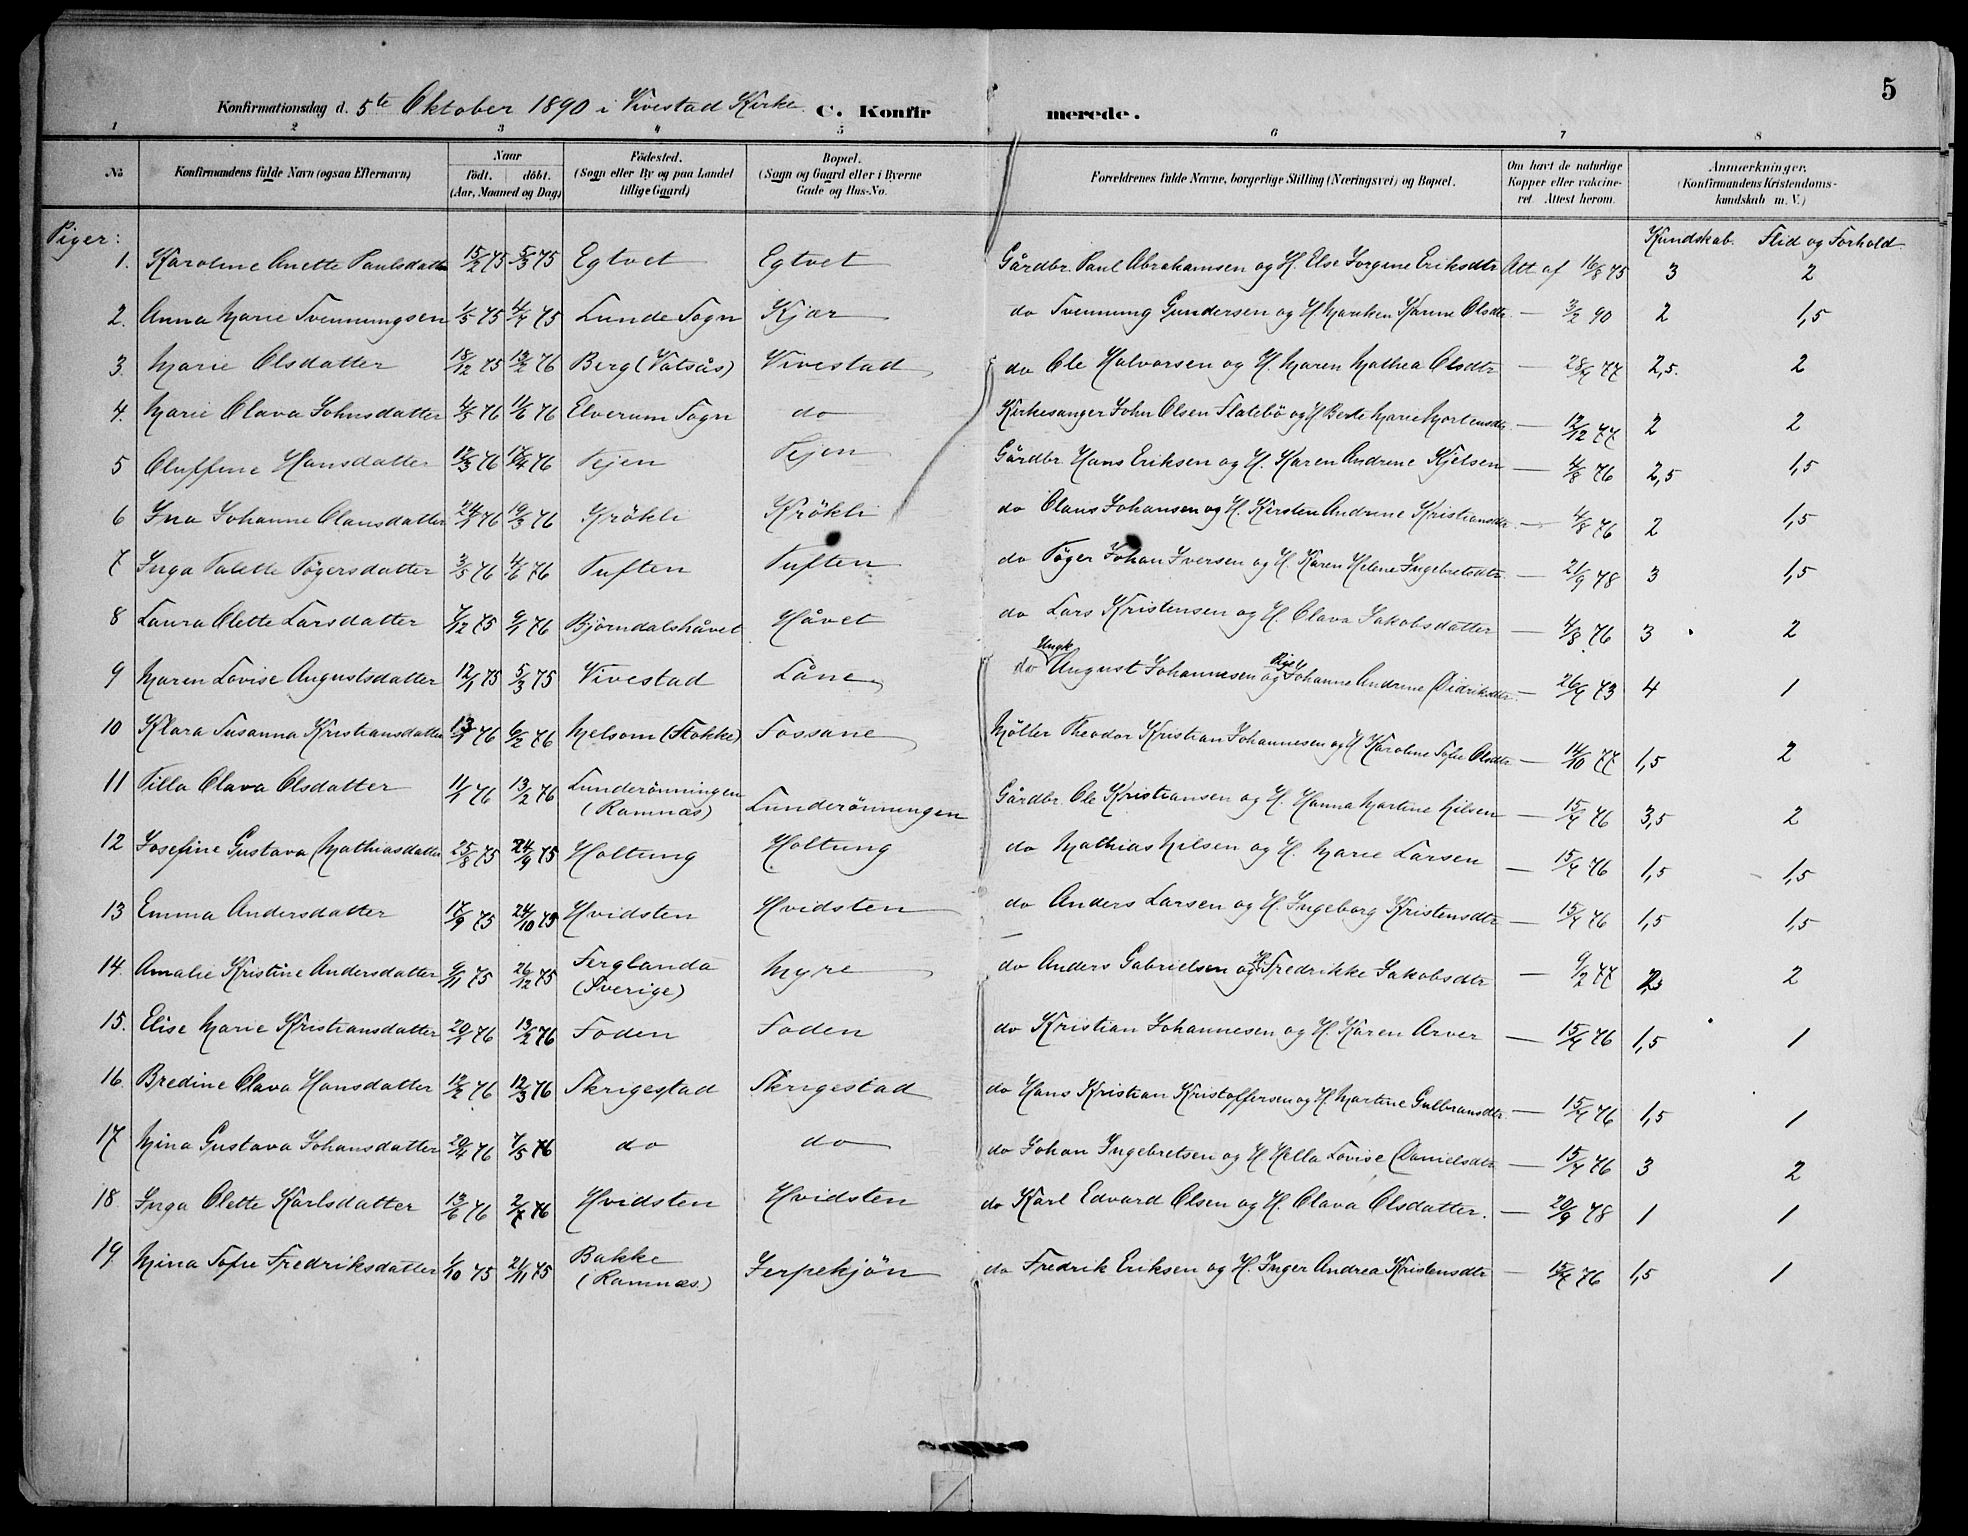 5
Konfirmationsdag d. 5te Oktober 1890 i Vivestad Kirke. C. Konfirmerede.
1 2 3 4 5 6 7 8
No. Konfirmandens fulde Navn (ogsaa Efternavn) Naar født. døbt. (Aar, Maaned og Dag) Fødested. (Sogn eller By og paa Landet tillige Gaard) Bopæl. (Sogn og Gaard eller i Byerne Gade og Hus-No. Forældrenes fulde Navne, borgerlige Stilling (Næringsvei) og Bopæl. Om havt de naturlige Kopper eller vakcineret. Attest herom. Anmærkninger. (Konfirmandens Kristendomskundskab m. V.)
Piger: Kundskab. Flid og Forhold
1. Karoline Anette Paulsdatter 15/2 75 5/3 75 Egtvet Egtvet Gårdbr. Paul Abrahamsen og H. Else Jorgine Eriksdtr Att. af 16/8 75 3 2
2. Anna Marie Svenningsen 1/5 75 4/7 75 Lunde Sogn Kjær do Svenning Gundersen og H. Hanne Olsdtr — 3/2 90 2 1,5
3. Marie Olsdatter 18/12 75 13/2 76 Berg (Vatsås) Vivestad do Ole Halvorsen og H. Maren Mathea Olsdtr — 28/4 77 2,5. 2
4. Marie Olava Johnsdatter 4/5 76 11/6 76 Elverum Sogn do Kirkesanger John Olsen Flatebö og H Berte Marie Mortensdtr — 12/12 77 2 2
5 Oluffine Hansdatter 12/3 76 17/4 76 Vejen Vejen Gårdbr. Hans Eriksen og H. Karen Andrine Kjelsen — 4/8 76 2,5 1,5
6 Ina Johanne Olausdatter 24/1 76 19/3 76 Krökli Krökli do Olaus Johansen og H. Kirsten Andrine Kristiansdtr — 4/8 76 2 1,5
7 Inga Valette Tögersdatter 3/5 76 4/6 76 Tuften Tuften do Töger Johan Iversen og H. Karen Helene Ingebretsdtr. — 21/9 78 3 1,5
8 Laura Olette Larsdatter 7/12 75 9/1 76 Björndalshåvet Håvet do Lars Kristensen og H. Olava Jakobsdatter — 4/8 76 3 2
9 Maren Lovise Augustsdatter 12/1 75 5/3 75 Vivestad Låne do Ungk August Johannesen og Pige Johanne Andrine Didriksdtr. — 26/4 73 4 1
10 Klara Susanna Kristiansdatter 13/1 76 6/2 76 Melsom (Stokke) Fossane Möller Theodor Kristian Johannesen og H Karoline Sofie Olsdtr — 14/10 77 1,5 2
11 Tilla Olava Olsdatter 11/1 76 13/2 76 Lunderönningen (Ramnæs) Lunderönningen Gårdbr. Ole Kristiansen og H. Hanna Martine Nilsen — 15/4 76 3,5 2
12 Josefine Gustava Mathiasdatter 25/8 75 24/9 75 Holtung Holtung do Mathias Nilsen og H. Marie Larsen — 15/4 76 1,5 1,5
13 Emma Andersdatter 17/9 75 24/10 75 Hvidsten Hvidsten do Anders Larsen og H. Ingeborg Kristensdtr — 15/4 76 1,5 1,5
14. Amalie Kristine Andersdatter 9/11 75 26/12 75 Ferglanda (Sverige) Myre do Anders Gabrielsen og H. Fredrikke Jakobsdtr — 9/2 77 2
15. Elise Marie Kristiansdatter 20/1 76 13/2 76 Foden Foden do Kristian Johannesen og H. Karen Arver — 15/4 76 1,5 1
16. Bredine Olava Hansdatter 12/2 76 12/3 76 Skrigestad Skrigestad do Hans Kristian Kristoffersen og H. Martine Gulbransdtr. — 15/4 76 1,5 1
17 Mina Gustava Johansdatter 20/4 76 7/5 76 do do do Johan Ingebretsen og H. Hella Lovise Danielsdtr — 15/4 76 3 2
18. Inga Olette Karlsdatter 13/6 76 2/7 76 Hvidsten Hvidsten do Karl Edvard Olsen og H. Olava Olsdatter. — 20/9 78 1 1
19. Mina Sofie Fredriksdatter 1/10 75 21/11 75 Bakke (Ramnæs) Jerpekjøn do Fredrik Eriksen og H. Inger Andrea Kristensdtr — 15/4 76 1,5 1